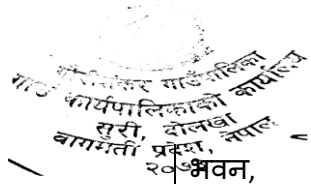 गौरीशंकर गाउँपालिका
गाउँ कार्यपालिकाको कार्यालय
सुरी, दोलखा
बागमती प्रदेश, नेपाल
भवन,